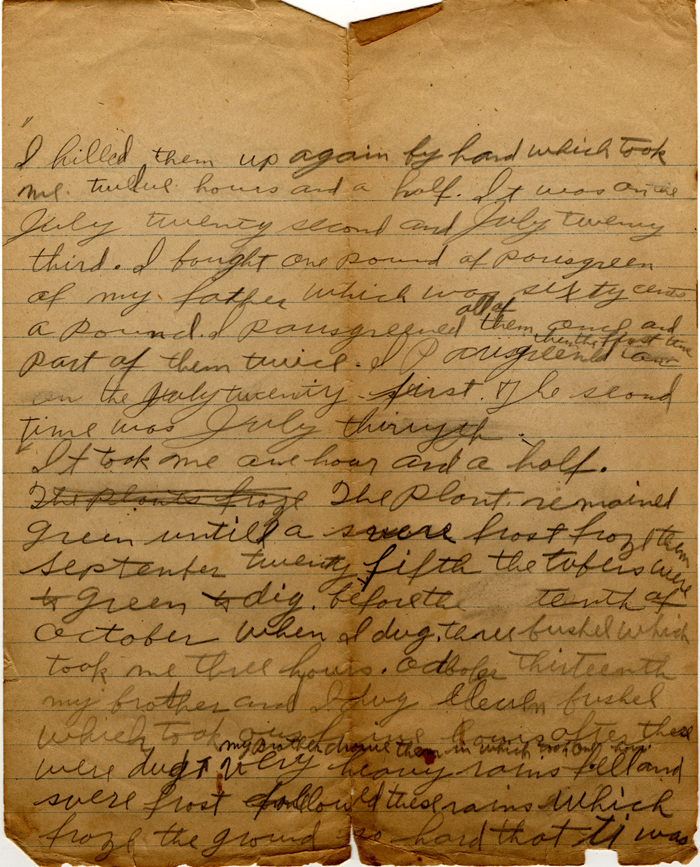 "
I hilled them up again by hand which took
me twelve hours and a half. It was on the
July twenty second and July twenty
third. I bought one pound of parisgreen
of my father which was sixty cents
a pound. I parisgreened all of them once and
part of them twice. I Parisgreened them the first time
on the July twenty first. The second
time was July thirtyth.
"It took me one hour and a half.
The plants froze The plant remained
green untill a severe frost froze them
September twenty fifth the tubers were
to green to dig. before the tenth of
October when I dug three bushel which
took me three hours. October thirteenth
my brother and I dug Eleven bushel
which took our hours after these
my brother drove them in which took one hour
were dug very heavy rains fell and
svere frost followed these rains which
froze the ground so hard that ti was